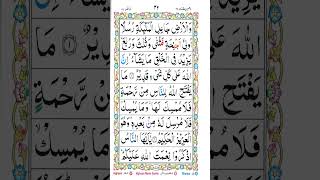 وَالْاَرْضِ جَاعِلِ الْمَلٰٓئِكَةِ رُسُلًا
اُولِیْۤ اَجْنِحَةٍ مَّثْنٰی وَثُلٰثَ وَرُبٰعَ
یَزِیْدُ فِی الْخَلْقِ مَا یَشَآءُ اِنَّ
اللّٰهَ عَلٰی كُلِّ شَیْءٍ قَدِیْرٌ ۝۱ مَا
یَفْتَحِ اللّٰهُ لِلنَّاسِ مِنْ رَّحْمَةٍ
فَلَا مُمْسِكَ لَهَا وَمَا یُمْسِكْ
فَلَا مُرْسِلَ لَهٗ مِنْۢ بَعْدِهٖ وَهُوَ
الْعَزِیْزُ الْحَكِیْمُ یٰۤاَیُّهَا النَّاسُ
اذْكُرُوْا نِعْمَتَ اللّٰهِ عَلَیْكُمْ